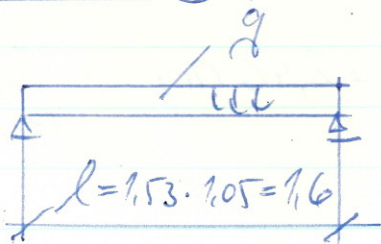 q
l=1,53·1,05=1,6